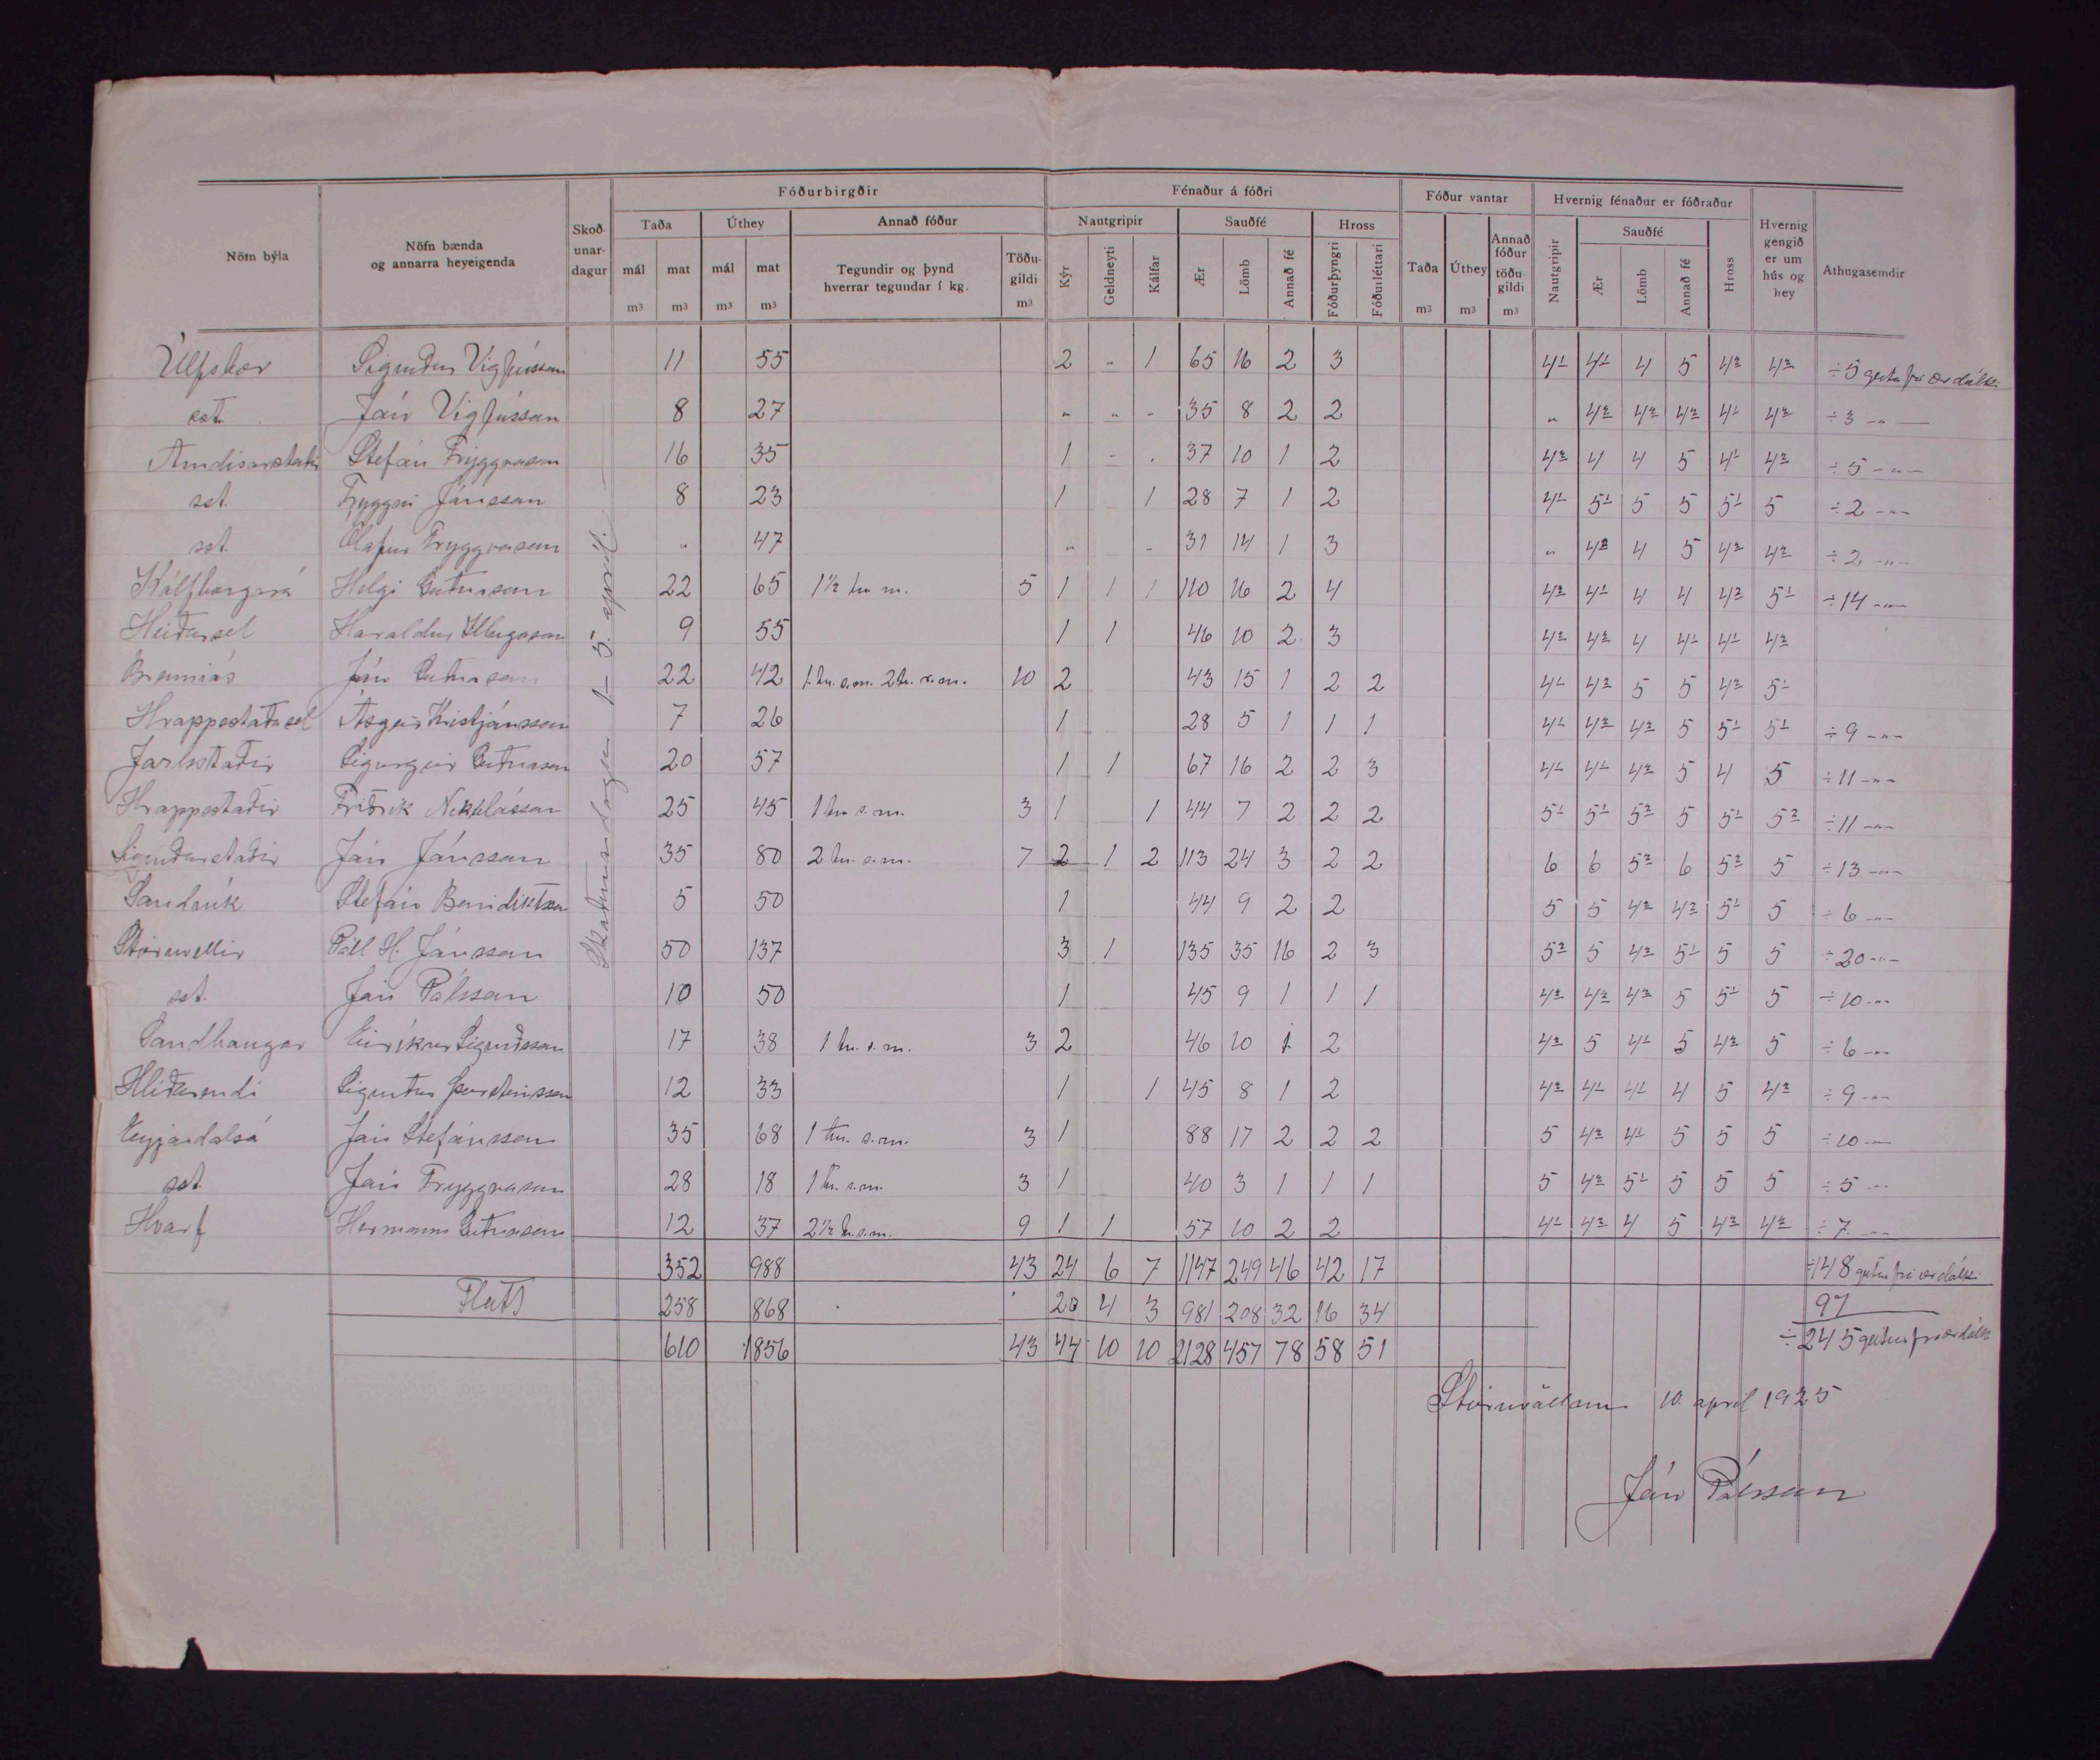 Fóðurbirgðir Fénaður á fóðri Fóður vantar Hvernig fénaður er fóðraður
Nöfn býla Nöfn bænda og annarra heyeigenda Skoðunardagur Taða Úthey Annað fóður Nautgripir Sauðfé Hross Taða Úthey Annað fóður töðugildi Nautgripir Sauðfé Hross Hvernig gengið er um hús og hey Athugasemdir
mál mat mál mat Tegundir og þynd hverrar tegundar í kg. Töðugildi Kýr Geldneyti Kálfar Ær Lömb Annað fé Fóðurþyngri Fóðurléttari Ær Lömb Annað fé
m³ m³ m³ m³ m³ m³ m³ m³
Skoðunardagur 1.-5. apríl.
Úlfsbær Sigurður Vigfússon 11 55 2 " 1 65 16 2 3 4½ 4½ 4 5 4² 4² ÷5 geitur frá ærdálki
set. Jón Vigfússon 8 27 " " " 35 8 2 2 " 4² 4² 4² 4½ 4² ÷3 -"-
Arndísarstaðir Stefán Tryggvason 16 35 1 " . 37 10 1 2 4² 4 4 5 4½ 4² ÷5 -"-
set. Tryggvi Jónsson 8 23 1 1 28 7 1 2 4½ 5½ 5 5 5½ 5 ÷2 -"-
set. Ólafur Tryggvason " 47 " " 31 14 1 3 " 4² 4 5 4² 4² ÷2 -"-
Kálfborgará Helgi Guðnason 22 65 1½ tn m. 5 1 1 1 110 16 2 4 4² 4½ 4 4 4² 5½ ÷14 -"-
Heiðarsel Haraldur Illugason 9 55 1 1 46 10 2 3 4² 4² 4 4½ 4½ 4²
Brenniás Jón Guðnason 22 42 1 tn. s.m. 2 tn. r.m. 10 2 43 15 1 2 2 4½ 4² 5 5 4² 5½
Hrappsstaðasel Ásgeir Kristjánsson 7 26 1 28 5 1 1 1 4½ 4² 4² 5 5½ 5½ ÷9 -"-
Jarlsstaðir Sigurgeir Guðnason 20 57 1 1 67 16 2 2 3 4½ 4½ 4² 5 4 5 ÷11 -"-
Hrappsstaðir Friðrik Nikulásson 25 45 1 tn s.m. 3 1 1 44 7 2 2 2 5½ 5½ 5² 5 5½ 5² ÷11 -"-
Sigurðarstaðir Jón Jónsson 35 80 2 tn. s.m. 7 2 1 2 113 24 3 2 2 6 6 5² 6 5² 5 ÷13 -"-
Sandvík Stefán Benidiktsson 5 50 1 44 9 2 2 5 5 4² 4² 5½ 5 ÷6 -"-
Stóruvellir Páll H. Jónsson 50 137 3 1 135 35 16 2 3 5² 5 4² 5½ 5 5 ÷20 -"-
set. Jón Pálsson 10 50 1 45 9 1 1 1 4² 4² 4² 5 5½ 5 ÷10 -"-
Sandhaugar Eiríkur Sigurðsson 17 38 1 tn. s.m. 3 2 46 10 1 2 4² 5 4½ 5 4² 5 ÷6 -"-
Hlíðarendi Sigurður Þorsteinsson 12 33 1 1 45 8 1 2 4² 4½ 4½ 4 5 4² ÷9 -"-
Eyjardalsá Jón Stefánsson 35 68 1 tn. s.m. 3 1 88 17 2 2 2 5 4² 4½ 5 5 5 ÷10 -"-
set Jón Tryggvason 28 18 1 tn. s.m. 3 1 40 3 1 1 1 5 4² 5½ 5 5 5 ÷5 -"-
Hvarf Hermann Guðnason 12 37 2½ tn. s.m. 9 1 1 57 10 2 2 4½ 4² 4 5 4² 4² ÷7 -"-
352 988 43 24 6 7 1147 249 46 42 17 ÷148 geitur frá ærdálki
Flutt 258 868 20 4 3 981 208 32 16 34 97
610 1856 43 44 10 10 2128 457 78 58 51 ÷245 geitur frá ærdálk
Stóruvöllum 10. apríl 1925
Jón Pálsson